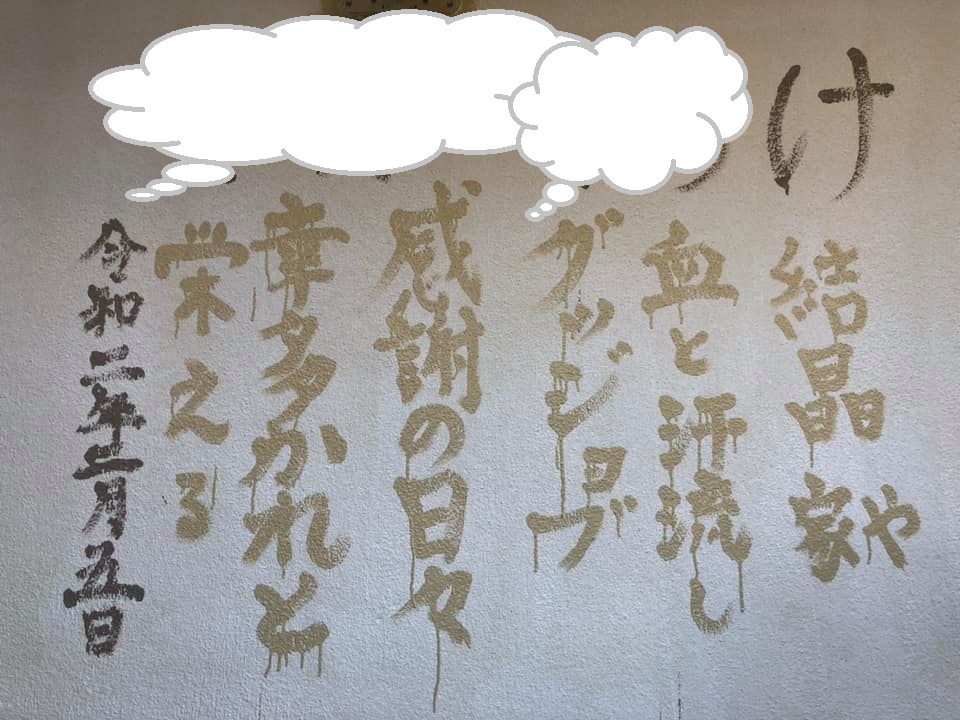 け
結晶や
家
血と汗流し
グッジョブ
感謝の日々
幸多かれと
栄える
令和二年七月五日